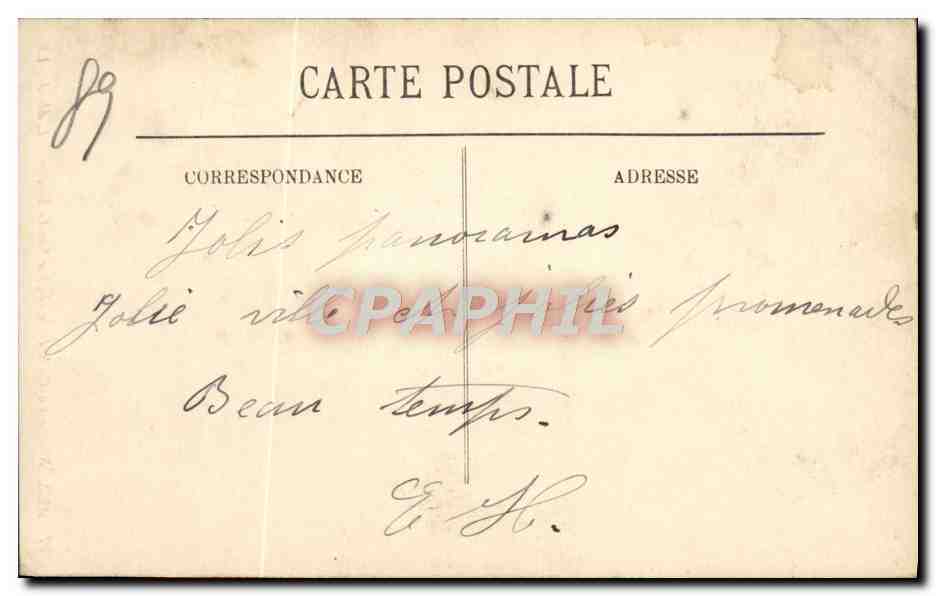 89
CARTE POSTALE
CORRESPONDANCE
ADRESSE
Jolis panoramas
Jolie ville et jolies promenades
CPAPHIL
Beau temps.
E H.